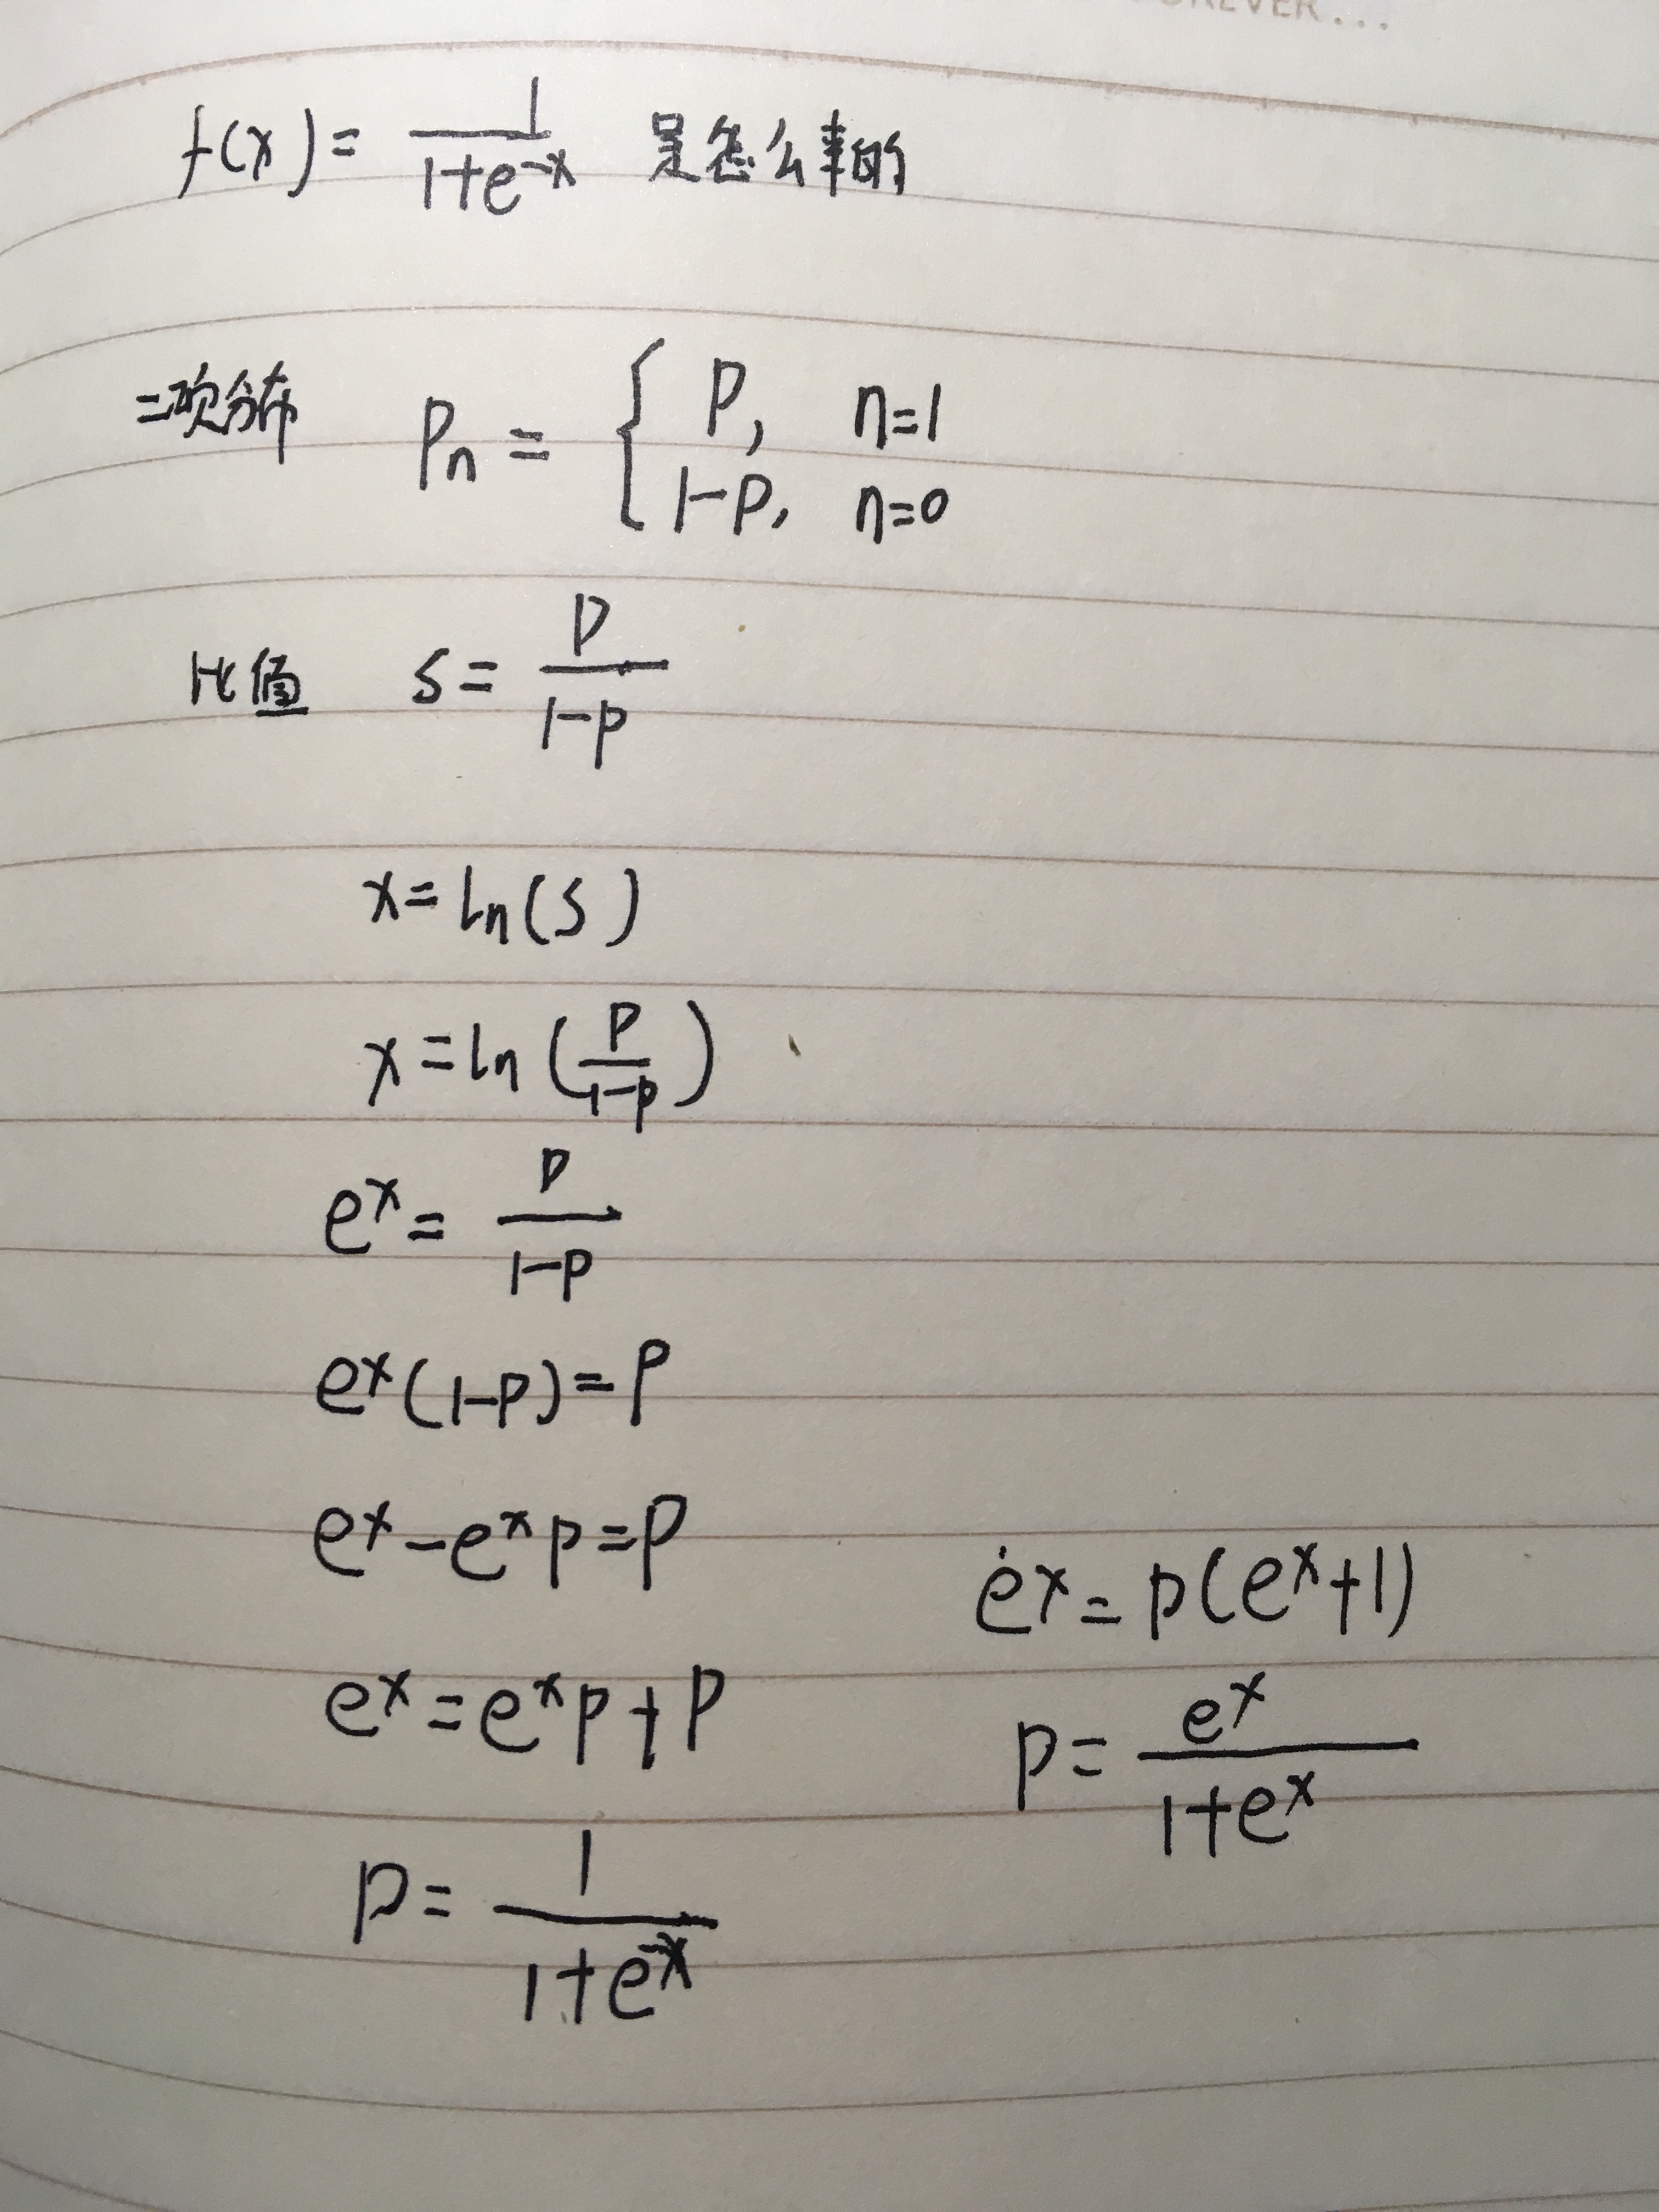 f(x) = 1/(1+e^-x) 是怎么来的
二项分布 Pn = { P, n=1
1-P, n=0
比值 S = P/(1-P)
x = ln(S)
x = ln(P/(1-P))
e^x = P/(1-P)
e^x(1-P) = P
e^x - e^x P = P
e^x = e^x P + P
P = 1/(1+e^-x)
e^x = P(e^x+1)
P = e^x/(1+e^x)